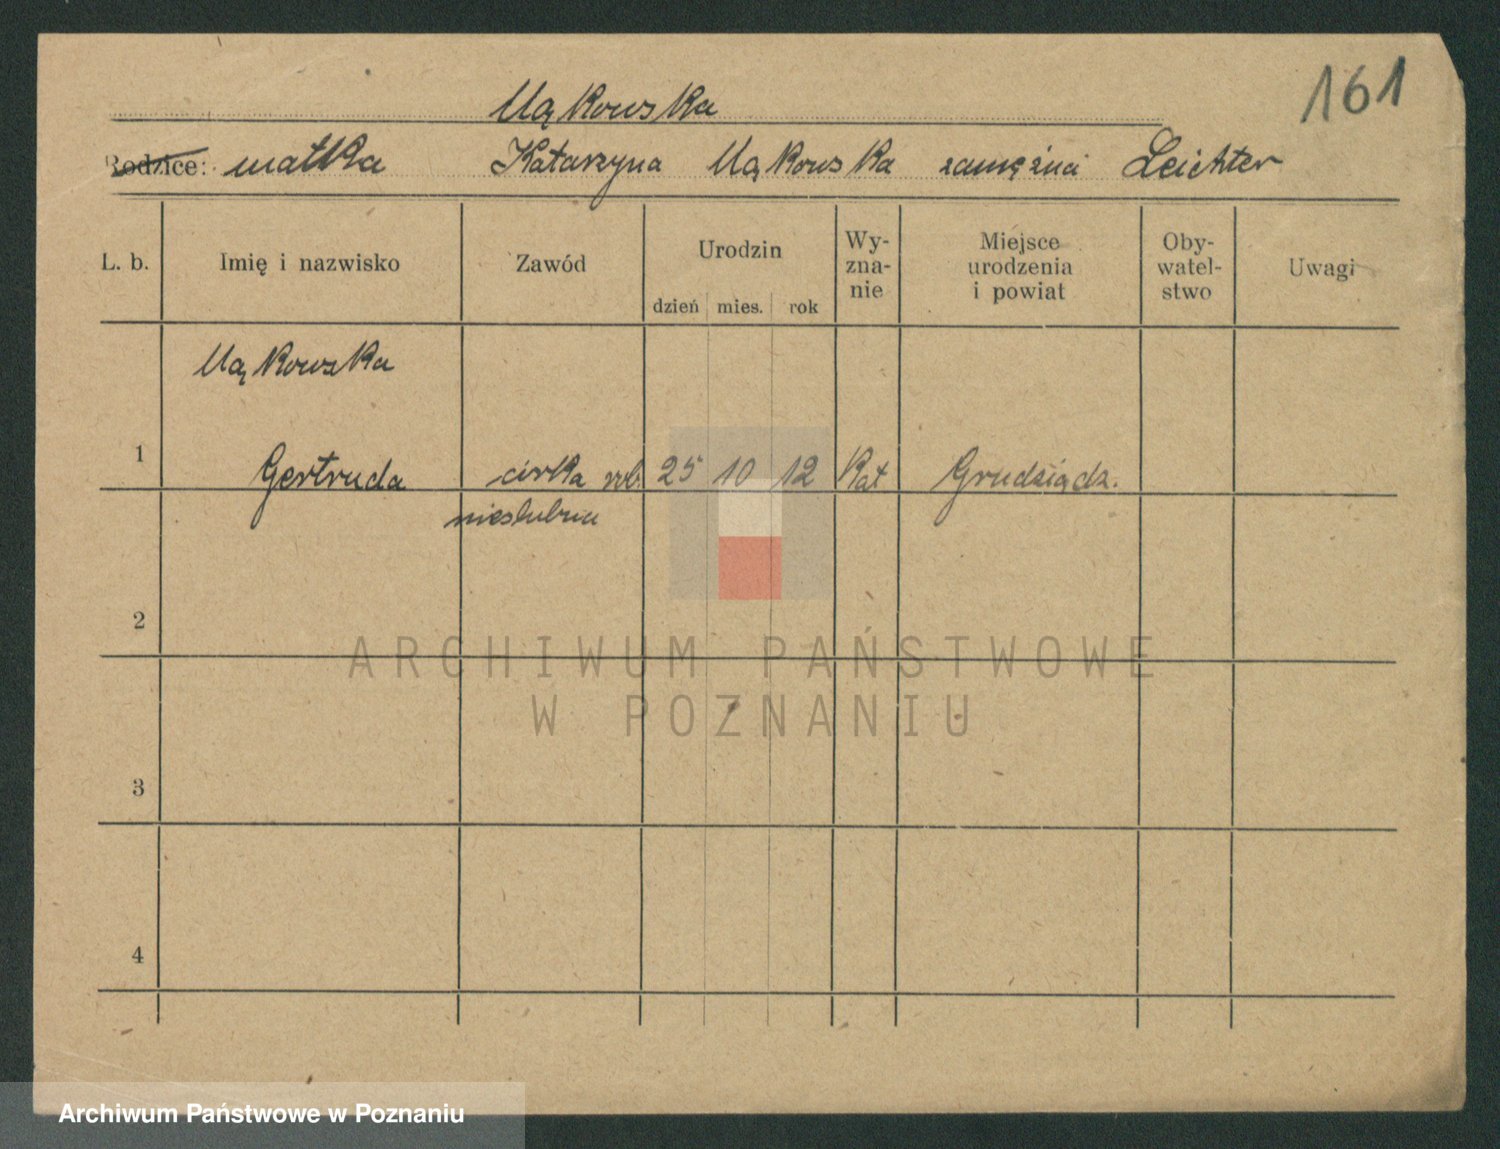 161
Mąkowska
Rodzice: matka Katarzyna Mąkowska zamężna Leichter
L. b. Imię i nazwisko Zawód Urodzin dzień mies. rok Wy-zna-nie Miejsce urodzenia i powiat Oby-watel-stwo Uwagi
Mąkowska
1 Gertruda córka rob. 25 10 12 Kat Grudziądz.
nieślubna
2
ARCHIWUM PAŃSTWOWE
W POZNANIU
3
4
Archiwum Państwowe w Poznaniu